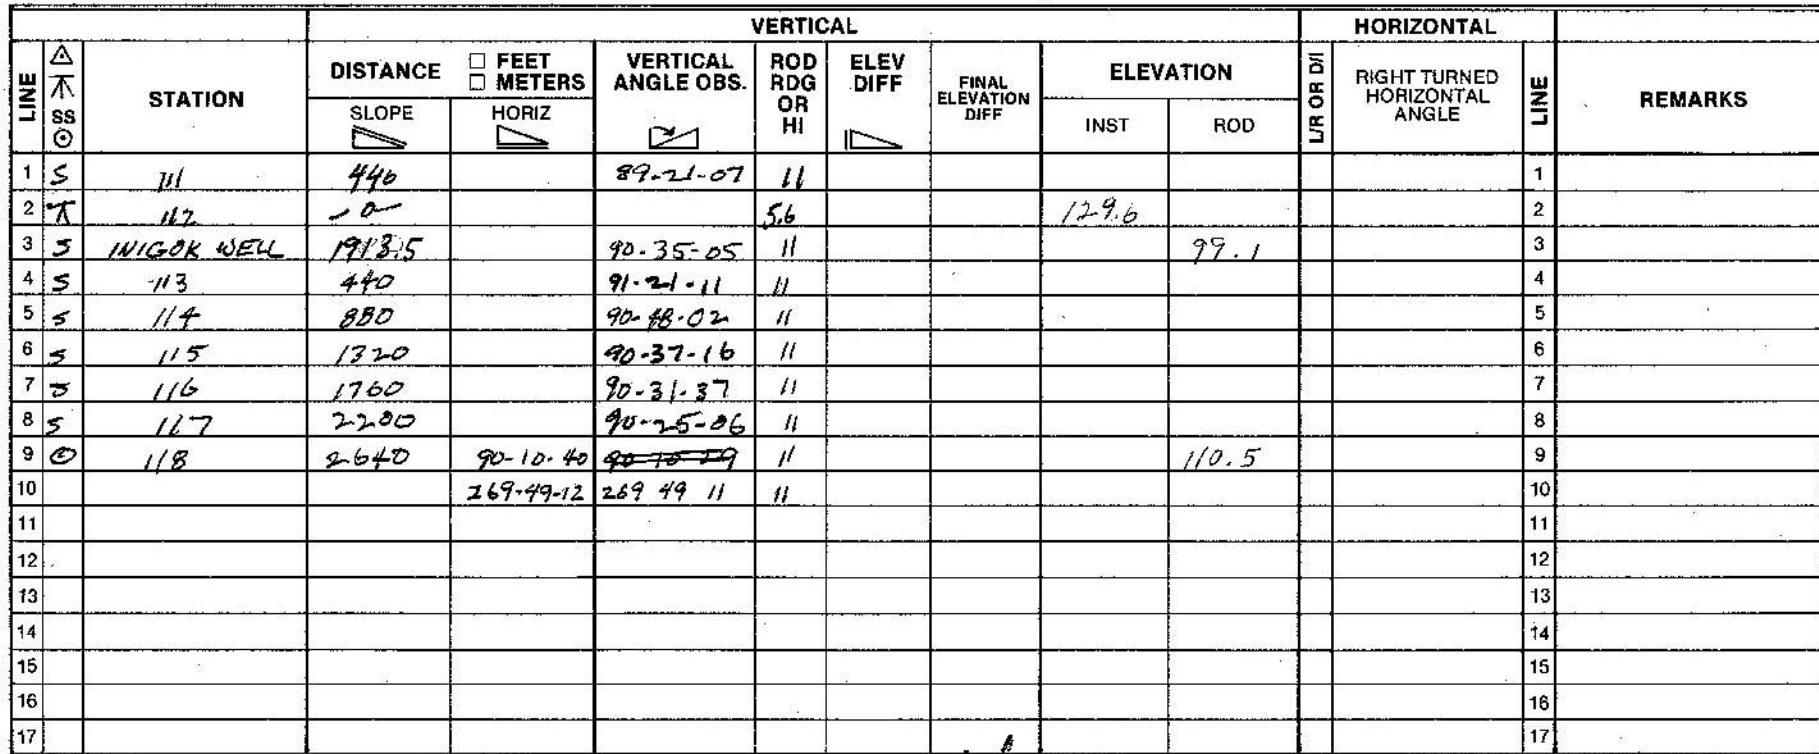 VERTICAL HORIZONTAL
LINE △ ⊼ SS ⊙ STATION DISTANCE □ FEET □ METERS SLOPE HORIZ VERTICAL ANGLE OBS. ROD RDG OR HI ELEV DIFF FINAL ELEVATION DIFF ELEVATION INST ROD L/R OR D/I RIGHT TURNED HORIZONTAL ANGLE LINE REMARKS
1 S 111 440 89-21-07 11 1
2 ⊼ 112 -0- 5.6 129.6 2
3 S INIGOK WELL 1913.5 90-35-05 11 99.1 3
4 S 113 440 91-21-11 11 4
5 S 114 880 90-48-02 11 5
6 S 115 1320 90-37-16 11 6
7 S 116 1760 90-31-37 11 7
8 S 117 2200 90-25-06 11 8
9 ⊙ 118 2640 90-10-40 11 110.5 9
10 269-49-12 269 49 11 11 10
11 11
12 12
13 13
14 14
15 15
16 16
17 17